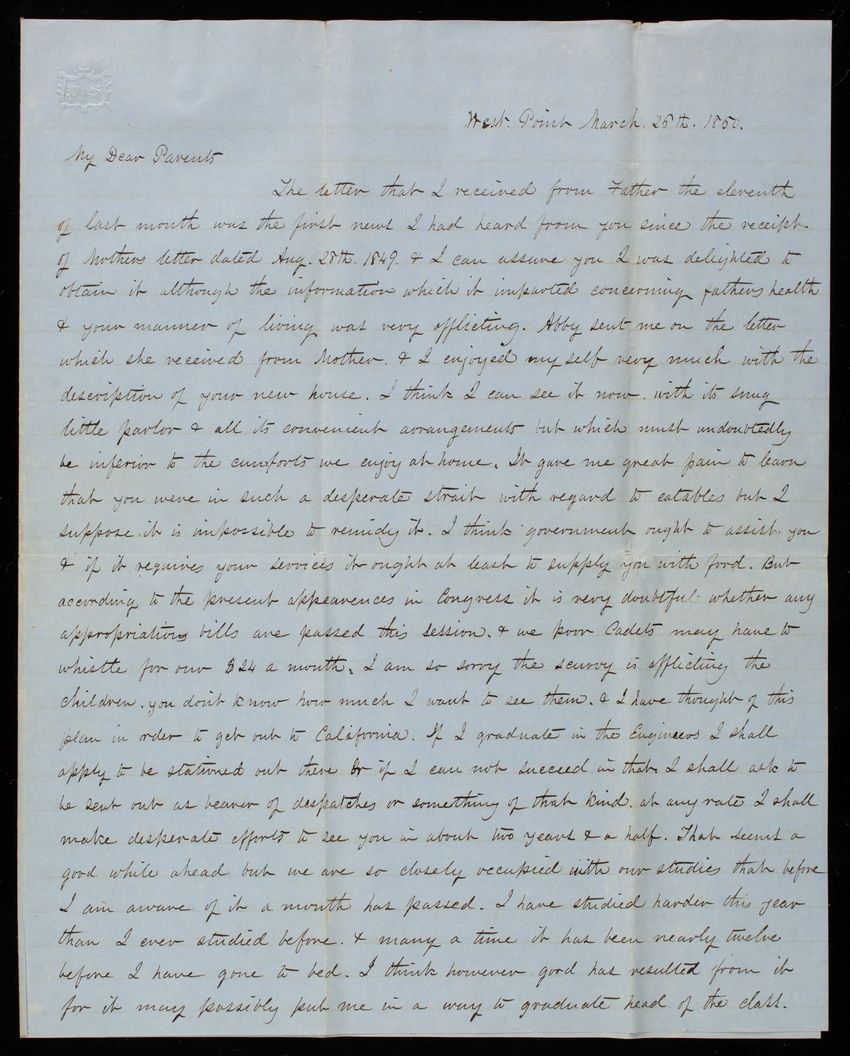 West Point March 25th. 1850.
My Dear Parents
The letter that I received from Father the eleventh
of last month was the first news I had heard from you since the receipt
of Mothers letter dated Aug. 28th. 1849. & I can assure you I was delighted to
obtain it although the information which it imparted concerning fathers health
& your manner of living was very afflicting. Abby sent me on the letter
which she received from Mother. & I enjoyed myself very much with the
description of your new house. I think I can see it now. with its snug
little parlor & all its convenient arrangements but which must undoubtedly
be inferior to the cumforts we enjoy at home. It gave me great pain to learn
that you were in such a desperate strait with regard to eatables but I
suppose it is impossible to remidy it. I think government ought to assist you
& if it requires your services it ought at least to supply you with food. But
according to the present appearences in Congress it is very doubtful whether any
appropriation bills are passed this session. & we poor Cadets may have to
whistle for our $24 a month. I am so sorry the scurvy is afflicting the
children. you dont know how much I want to see them. & I have thought of this
plan in order to get out to California. If I graduate in the Engineers I shall
apply to be stationed out there Or if I can not succeed in that I shall ask to
be sent out as bearer of despatches or something of that kind. at any rate I shall
make desperate efforts to see you in about two years & a half. That seems a
good while ahead but we are so closely occupied with our studies that before
I am aware of it a month has passed. I have studied harder this year
than I ever studied before. & many a time it has been nearly twelve
before I have gone to bed. I think however good has resulted from it
for it may possibly put me in a way to graduate head of the class.